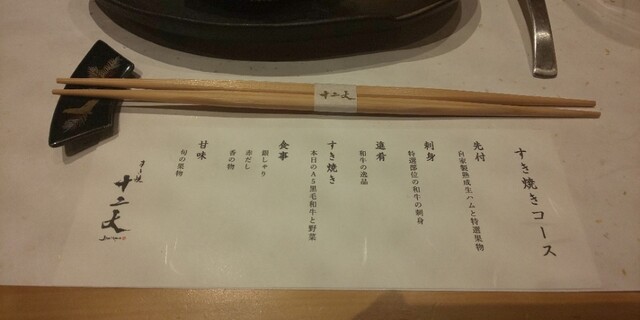 すき焼きコース
先付
自家製熟成生ハムと特選果物
刺身
特選部位の和牛の刺身
進肴
和牛の逸品
すき焼き
本日のA5黒毛和牛と野菜
食事
銀しゃり
赤だし
香の物
甘味
旬の果物
すき焼
十二天
十二天